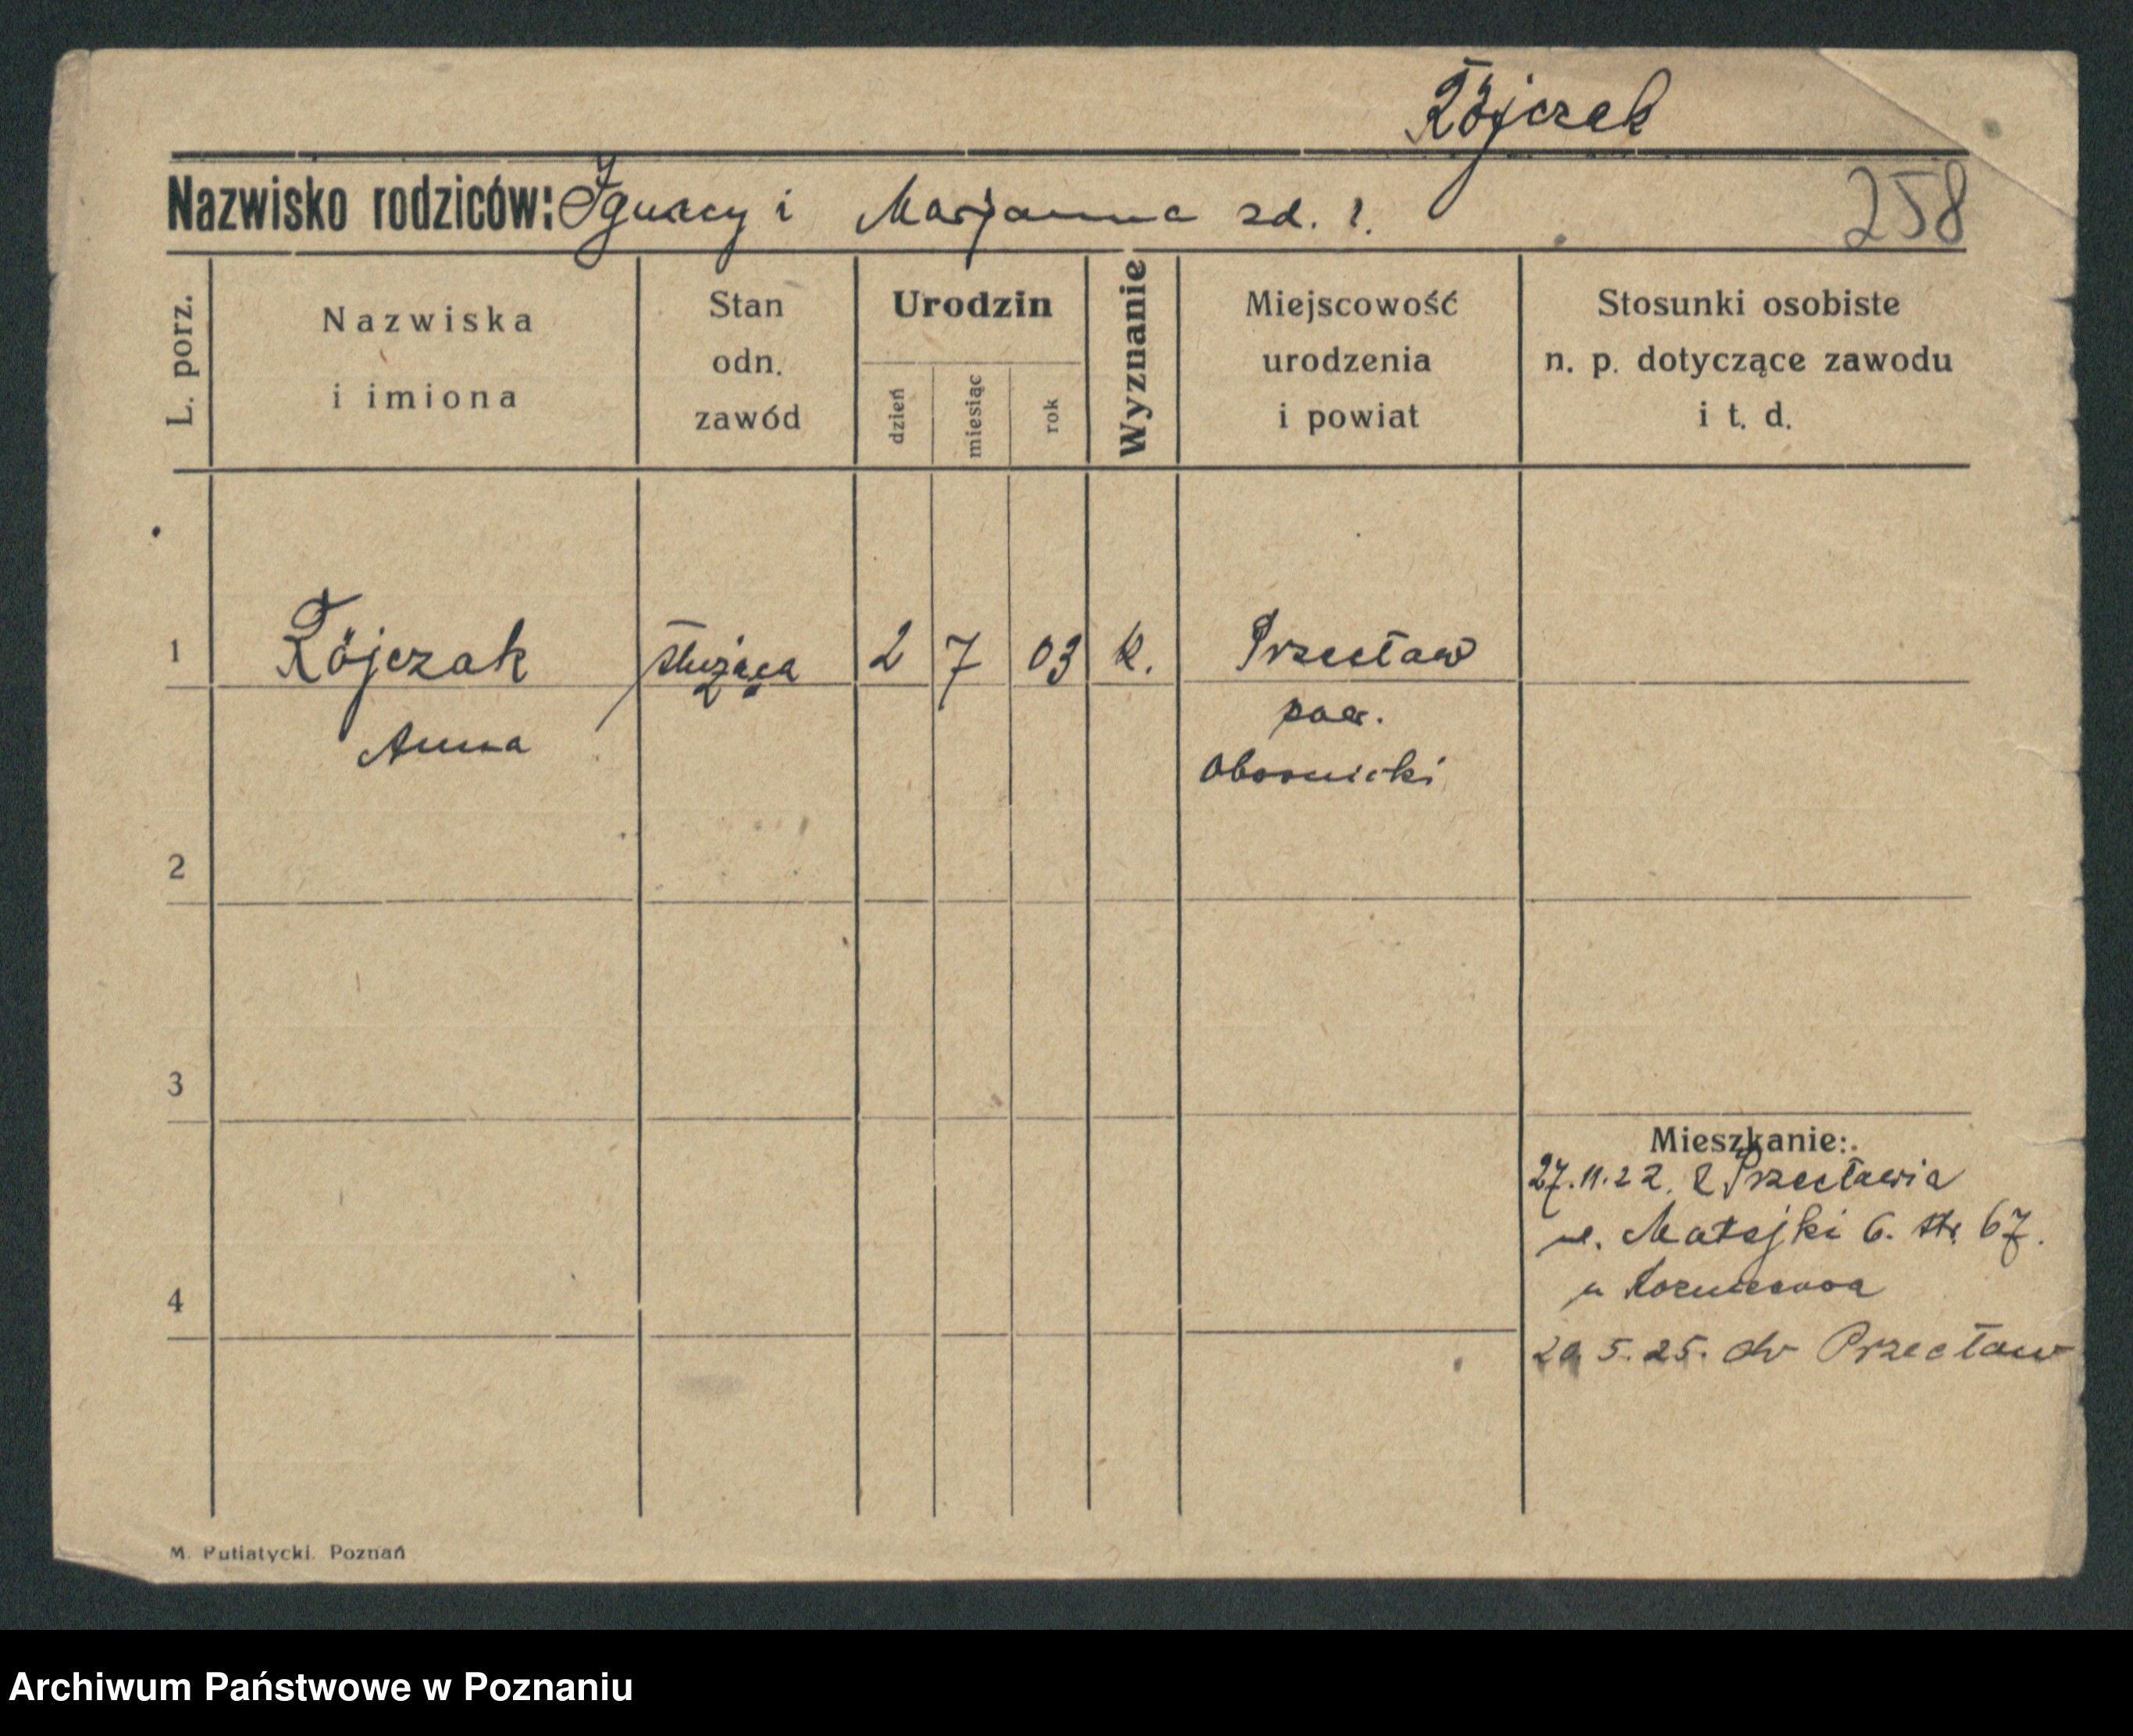 Łójczak
Nazwisko rodziców: Ignacy i Marjanna zd. ?.
258
L. porz.
Nazwiska
i imiona
Stan
odn.
zawód
Urodzin
dzień
miesiąc
rok
Wyznanie
Miejscowość
urodzenia
i powiat
Stosunki osobiste
n. p. dotyczące zawodu
i t. d.
1 Łójczak służąca 2 7 03 k. Przecław
pow.
Anna
Obornicki
2
3
Mieszkanie:
27.11.22. z Przecławia
ul. Matejki 6. str. 67.
u
4
20.5.25. do Przecław
M. Putiatycki. Poznań
Archiwum Państwowe w Poznaniu